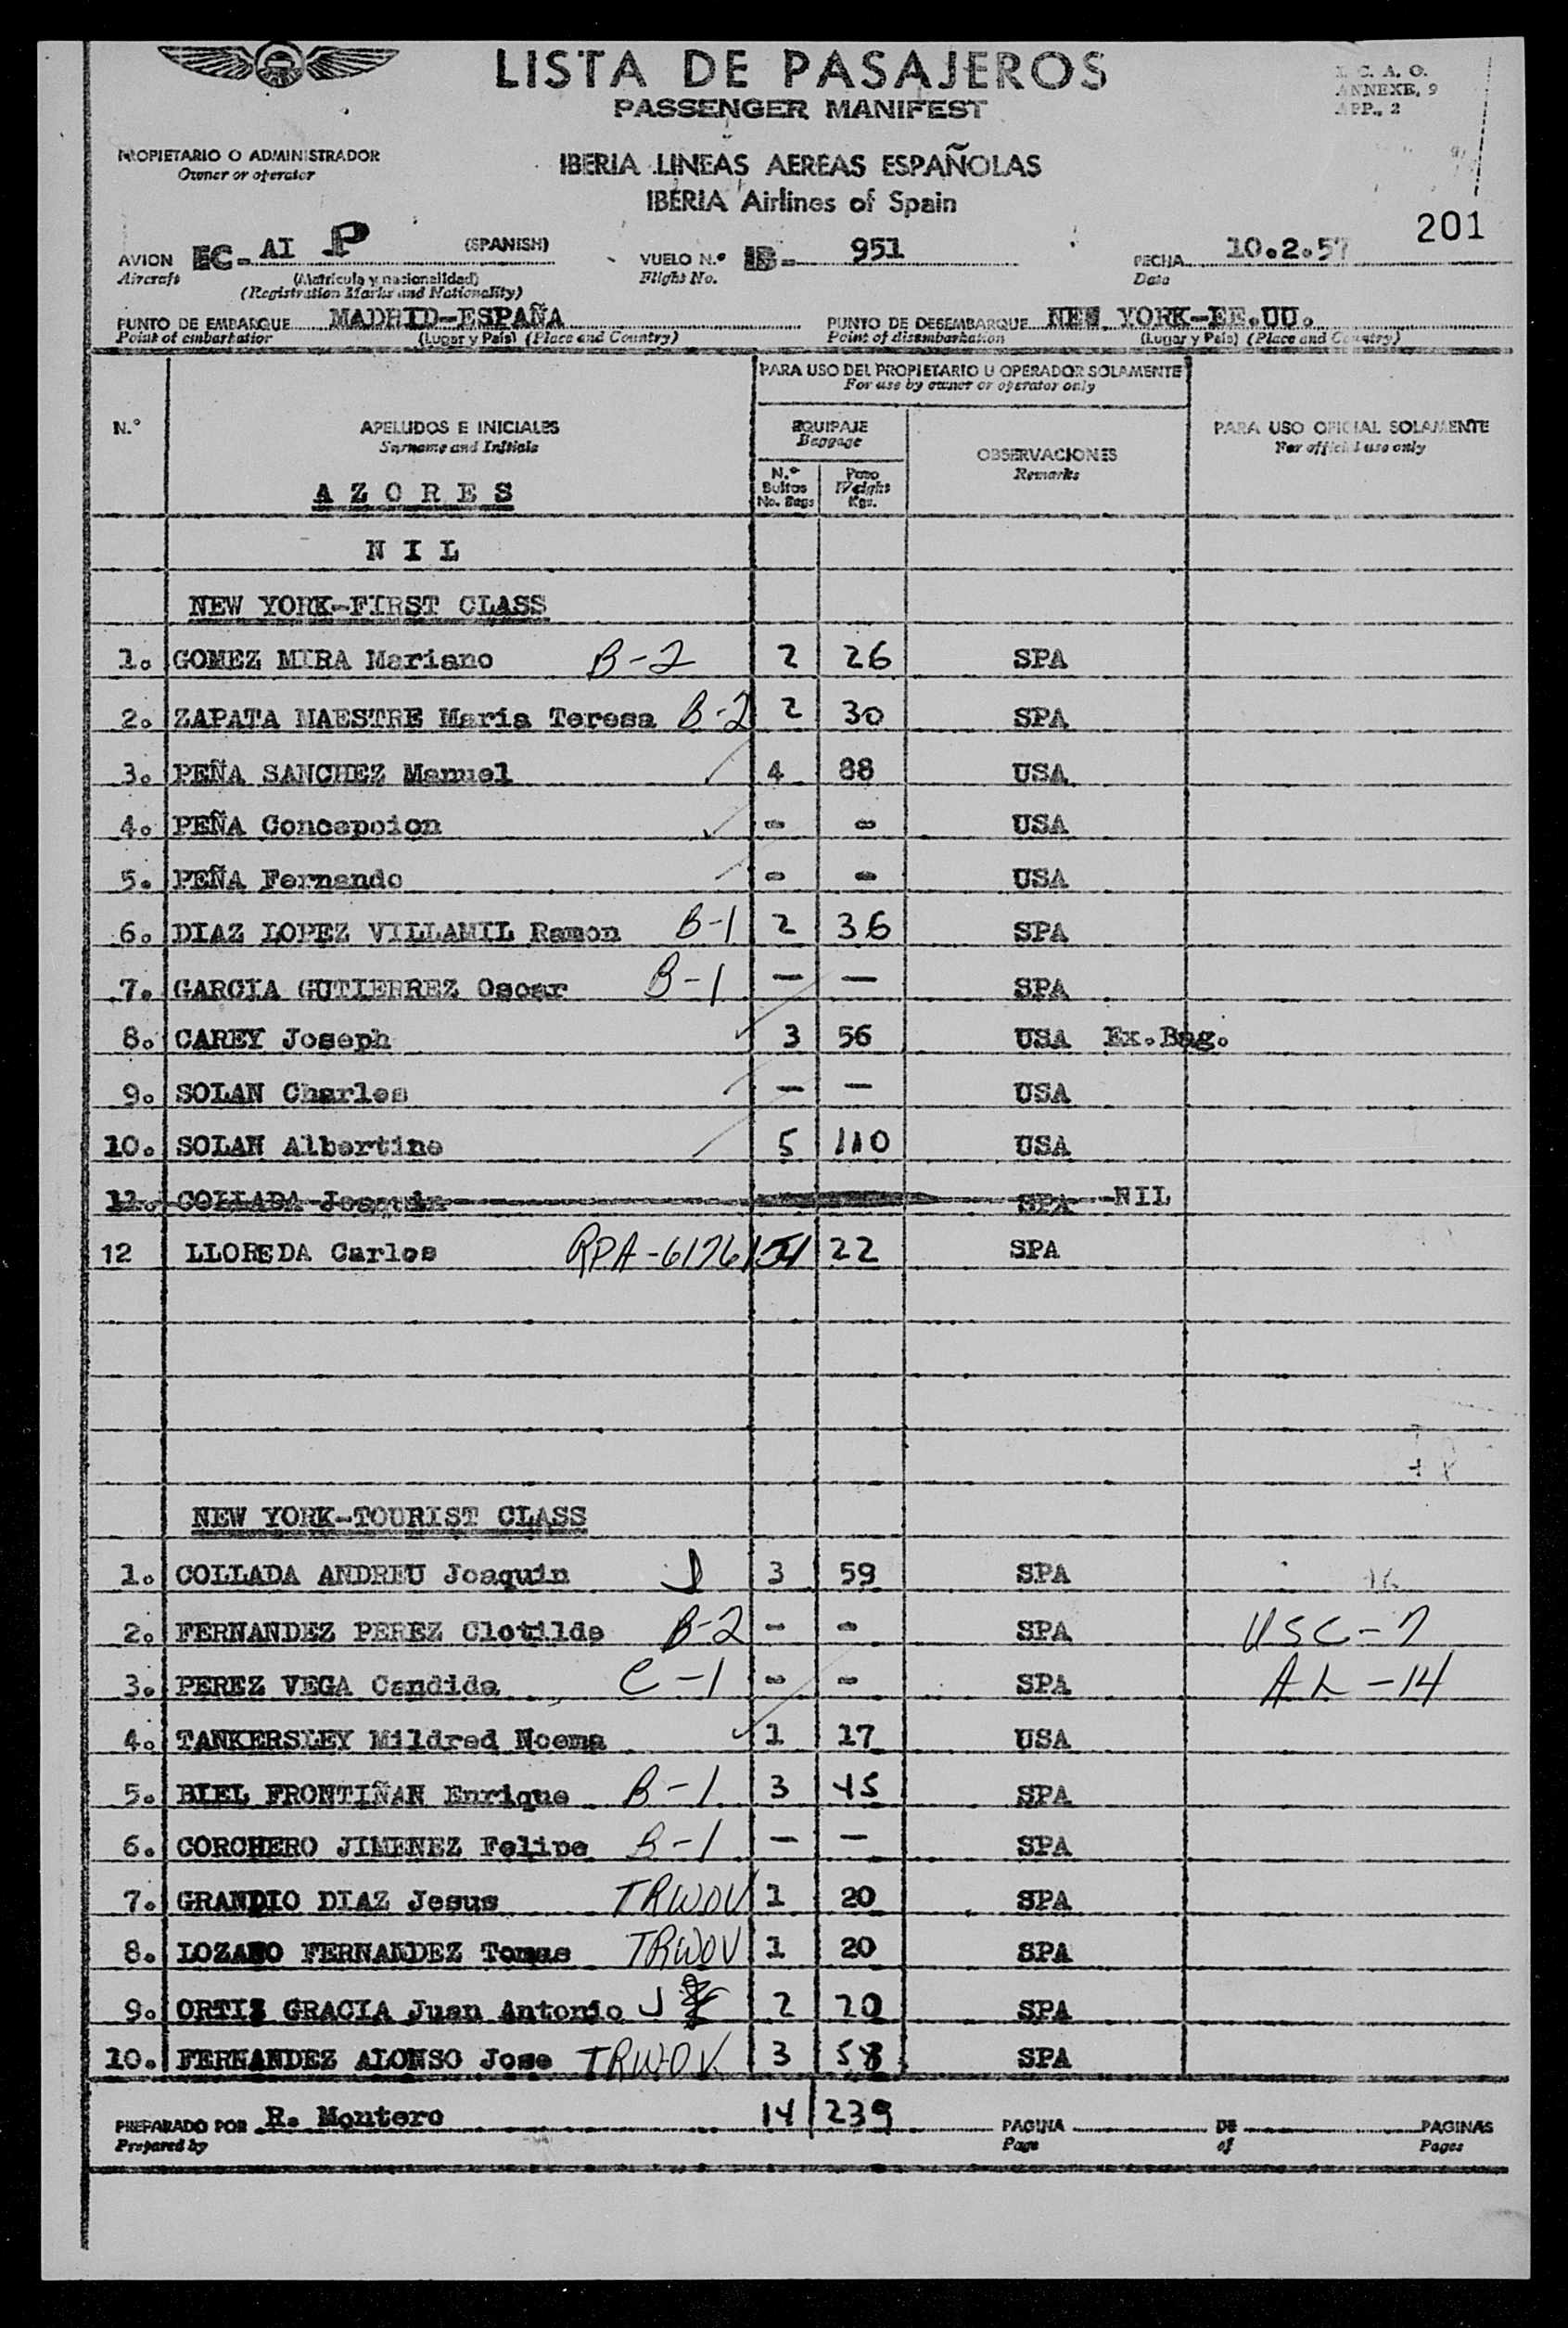 LISTA DE PASAJEROS
PASSENGER MANIFEST
I. C. A. O.
ANNEXE, 9
APP., 2
PROPIETARIO O ADMINISTRADOR
Owner or operator
IBERIA LINEAS AEREAS ESPAÑOLAS
IBERIA Airlines of Spain
201
AVION EC-AI P (SPANISH) VUELO N.º IB- 951 FECHA 10.2.57
Aircraft (Matrícula y nacionalidad) Flight No. Date
(Registration Marks and Nationality)
PUNTO DE EMBARQUE MADRID-ESPAÑA PUNTO DE DESEMBARQUE NEW YORK-EE.UU.
Point of embarkation (Lugar y País) (Place and Country) Point of disembarkation (Lugar y País) (Place and Country)
PARA USO DEL PROPIETARIO U OPERADOR SOLAMENTE
For use by owner or operator only
N.º APELLIDOS E INICIALES EQUIPAJE PARA USO OFICIAL SOLAMENTE
Surname and Initials Baggage For official use only
OBSERVACIONES
Remarks
N.º Bultos No. Bags Peso Weight Kgs.
AZORES
NIL
NEW YORK-FIRST CLASS
1. GOMEZ MIRA Mariano B-2 2 26 SPA
2. ZAPATA MAESTRE Maria Teresa B-2 2 30 SPA
3. PEÑA SANCHEZ Manuel 4 88 USA
4. PEÑA Concepcion - - USA
5. PEÑA Fernando - - USA
6. DIAZ LOPEZ VILLAMIL Ramon B-1 2 36 SPA
7. GARCIA GUTIERREZ Oscar B-1 - - SPA
8. CAREY Joseph 3 56 USA Ex.Bag.
9. SOLAN Charles - - USA
10. SOLAN Albertine 5 110 USA
11. COLLADA Joaquin SPA NIL
12 LLOREDA Carlos RPA-6176 22 SPA
NEW YORK-TOURIST CLASS
1. COLLADA ANDREU Joaquin J 3 59 SPA
2. FERNANDEZ PEREZ Clotilde B-2 - - SPA USC-7
3. PEREZ VEGA Candida C-1 - - SPA AL-14
4. TANKERSLEY Mildred Noema 1 17 USA
5. BIEL FRONTIÑAN Enrique B-1 3 45 SPA
6. CORCHERO JIMENEZ Felipe B-1 - - SPA
7. GRANDIO DIAZ Jesus TRWOV 1 20 SPA
8. LOZANO FERNANDEZ Tomas TRWOV 1 20 SPA
9. ORTIZ GRACIA Juan Antonio J 2 20 SPA
10. FERNANDEZ ALONSO Jose TRWOV 3 58 SPA
PREPARADO POR R. Montero 14 239 PAGINA DE PAGINAS
Prepared by Page of Pages